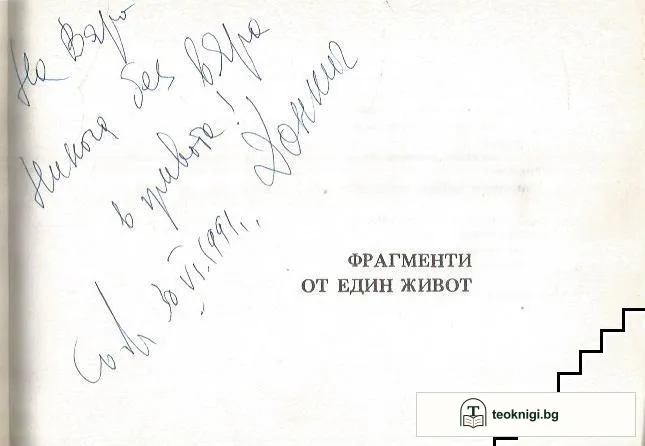 На Вяра
никога без вяра
в живота!
30 VI.1991г.
ФРАГМЕНТИ
ОТ ЕДИН ЖИВОТ
T
teoknigi.bg